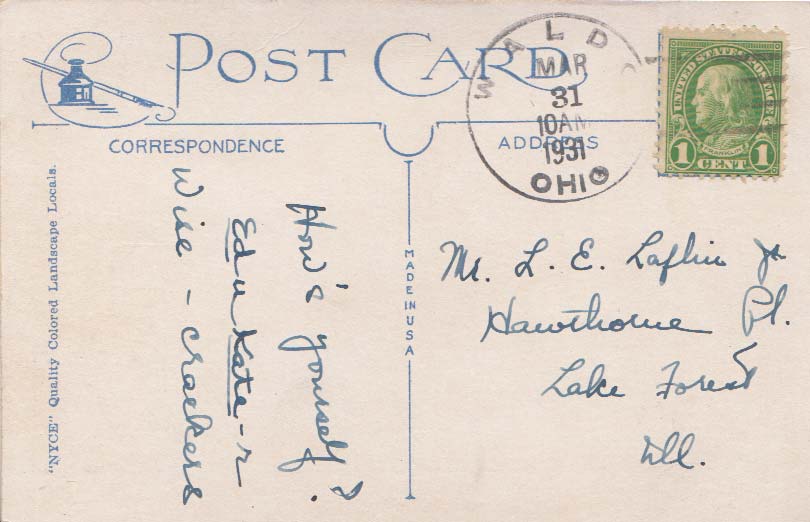 POST CARD
CORRESPONDENCE
ADDRESS
WALDO
MAR
31
10AM
1931
OHIO
UNITED STATES POSTAGE
FRANKLIN
1 CENT 1
"NYCE" Quality Colored Landscape Locals.
How's yourself?
Ed u Kate-r
Wise-crackers
MADE IN USA
Mr. L. E. Laflin Jr
Hawthorne Pl.
Lake Forest
Ill.